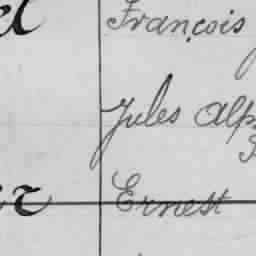 François
Jules Alp
Ernest